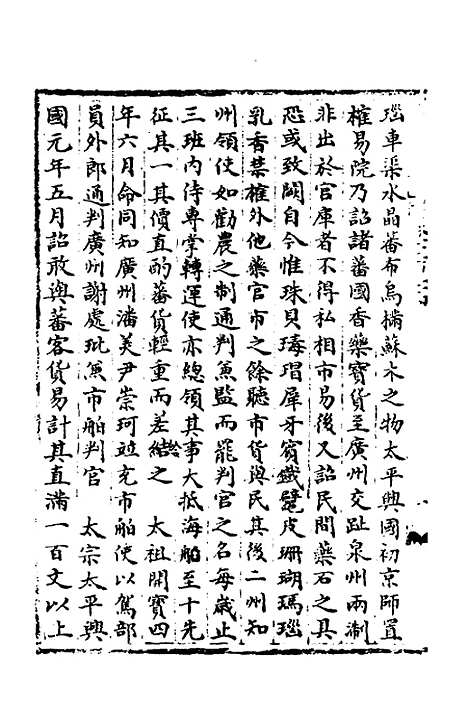 瑙車渠水晶蕃布烏樠蘇木之物太平興國初京師置
榷易院乃詔諸蕃國香藥寶貨至廣州交趾泉州兩浙
非出於官庫者不得私相市易後又詔民間藥石之具
恐或致闕自今惟珠貝瑇瑁犀牙賓鐵鼊皮珊瑚瑪瑙
乳香禁榷外他藥官市之餘聽市貨與民其後二州知
州領使如勸農之制通判兼監而罷判官之名每歲止
三班內侍專掌轉運使亦總領其事大抵海舶至十先
征其一其價直酌蕃貨輕重而差給之 太祖開寶四
年六月命同知廣州潘美尹崇珂並充市舶使以駕部
員外郎通判廣州謝處玭兼市舶判官 太宗太平興
國元年五月詔敢與蕃客貨易計其直滿一百文以上